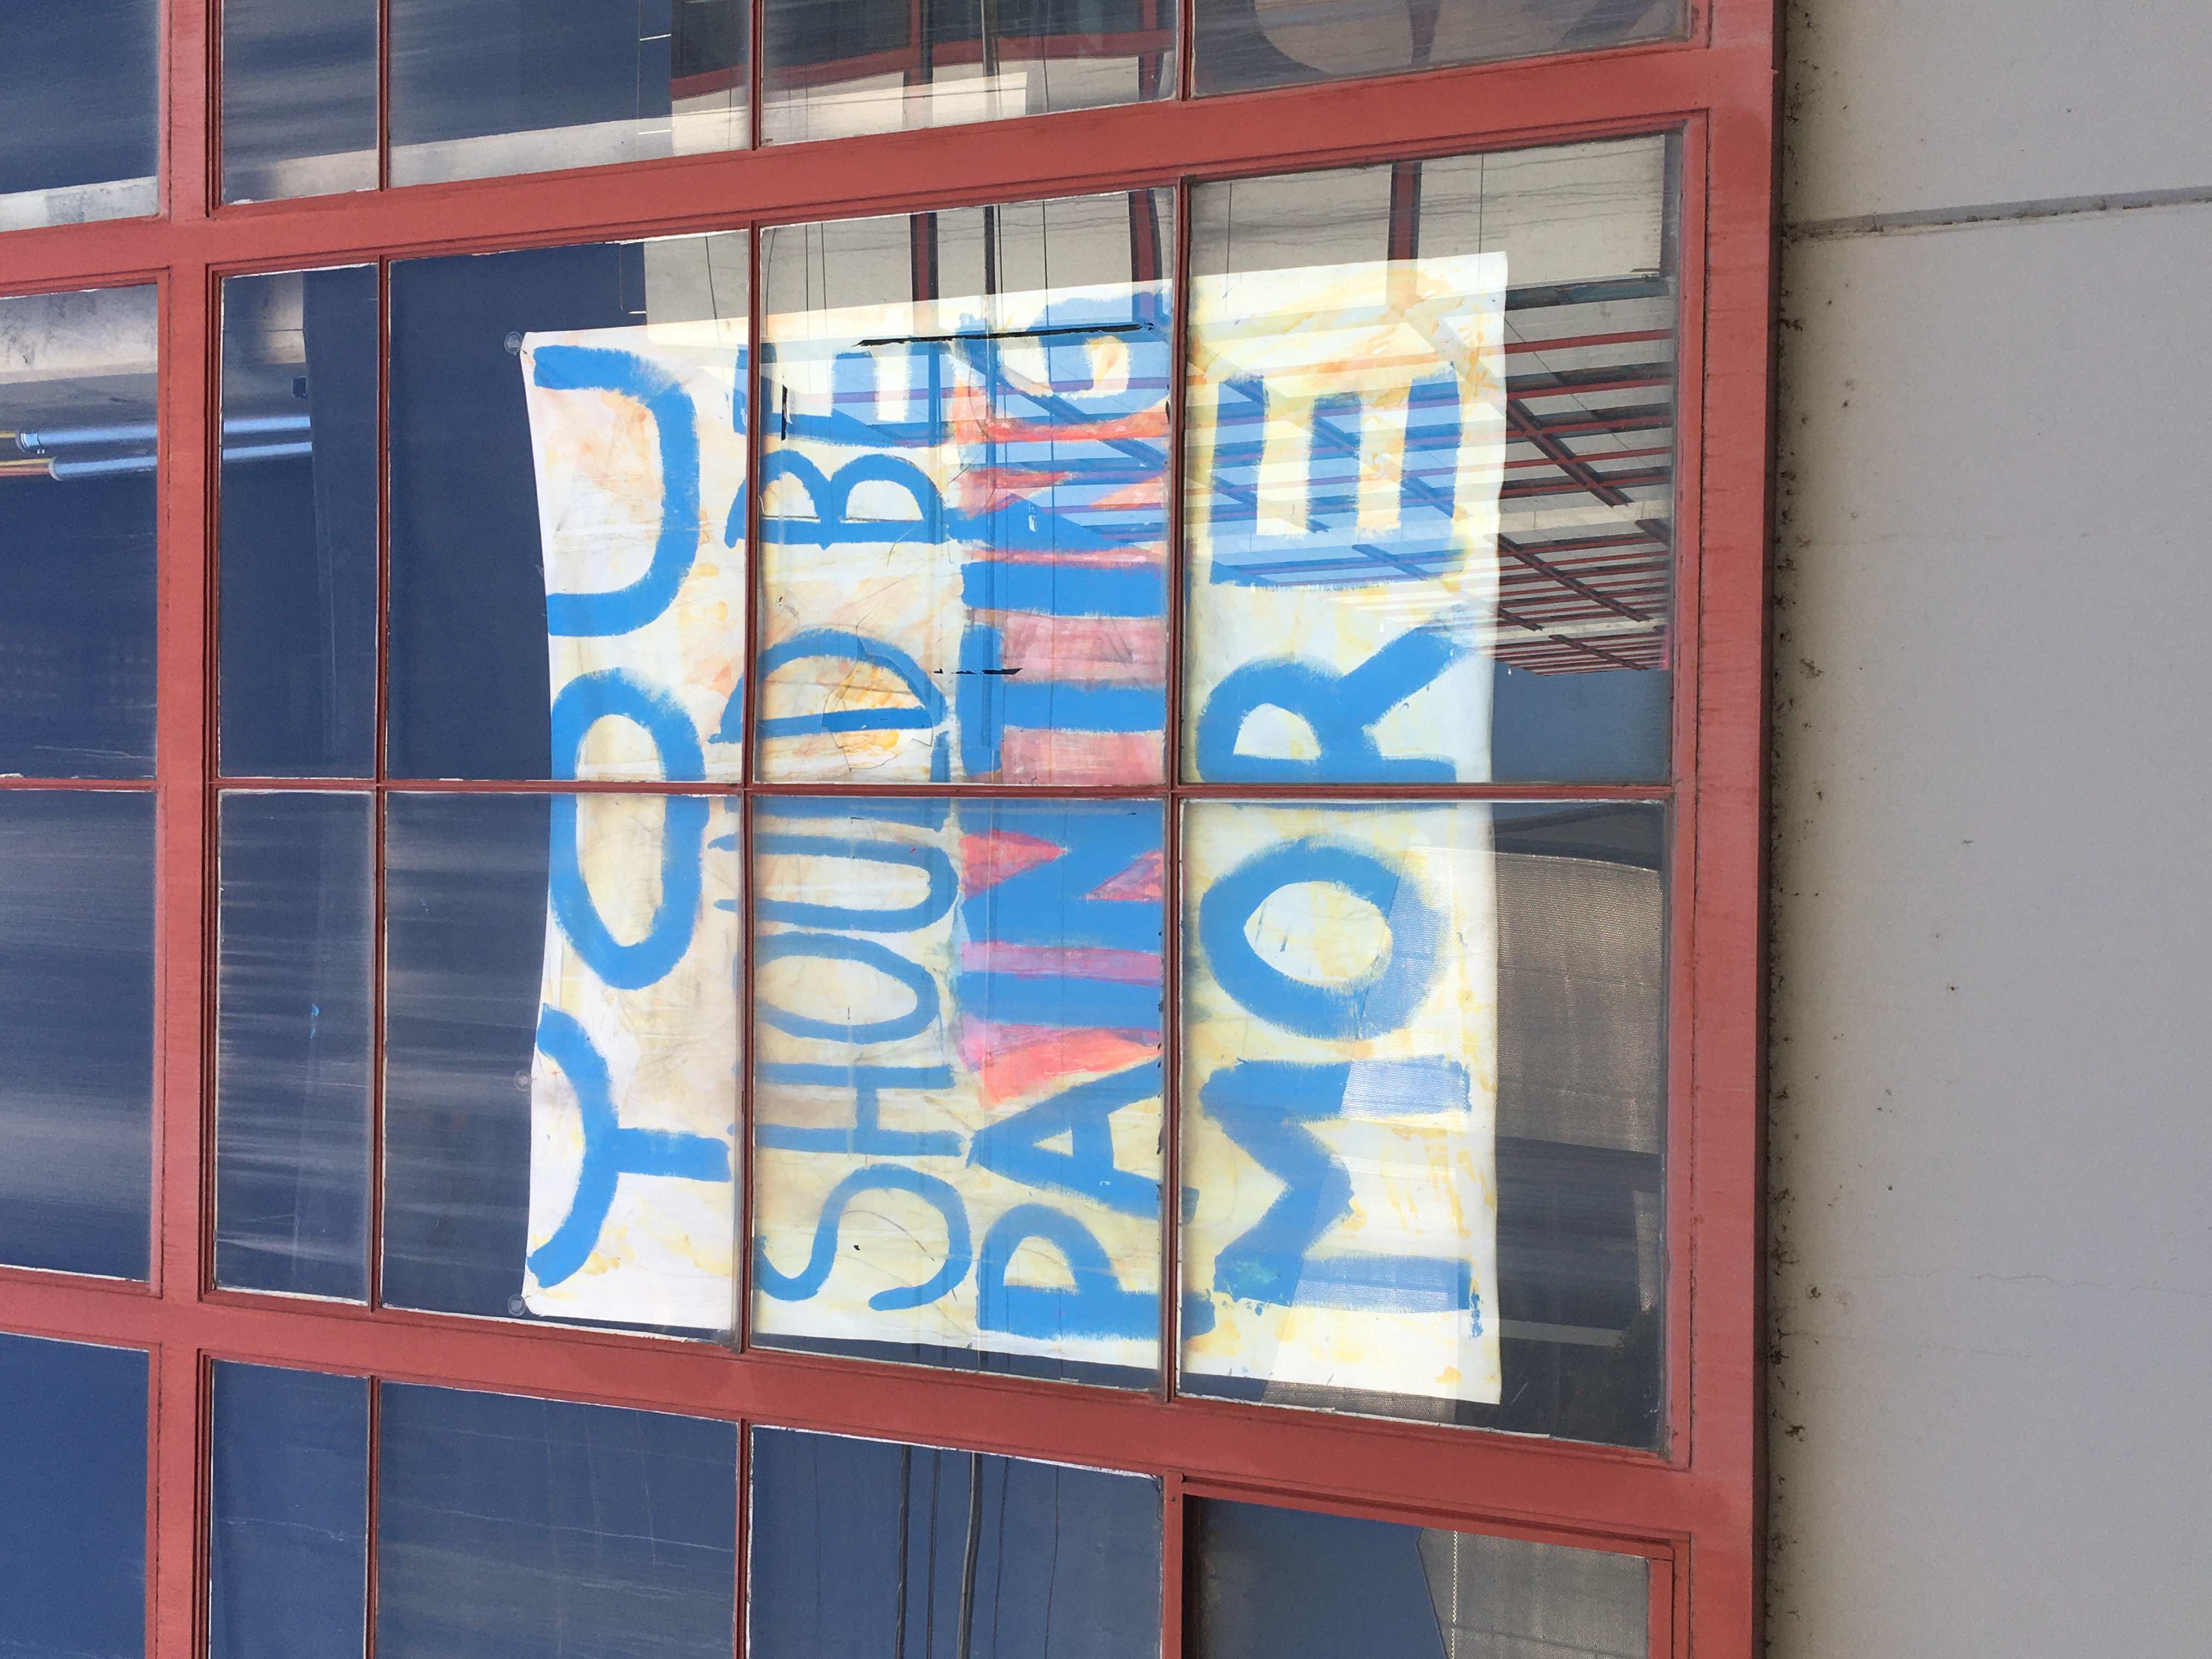 YOU
SHOULD BE
PAINTING
MORE